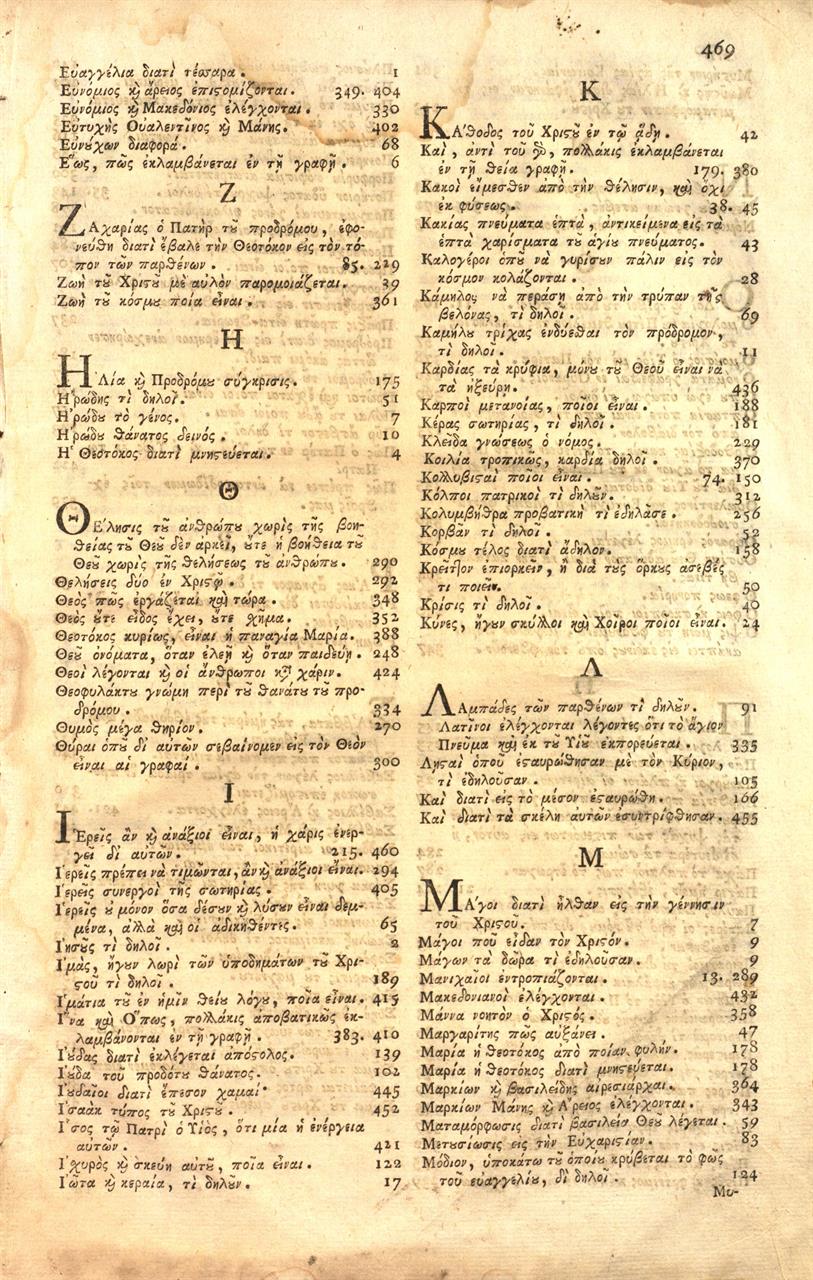 469
Εὐαγγέλια διατὶ τέσσαρα. 1
Εὐνόμιος ϗ ἄρειος ἐπιστομίζονται. 349. 404
Εὐνόμιος ϗ Μακεδόνιος ἐλέγχονται. 330
Εὐτυχὴς Οὐαλεντῖνος ϗ Μάνης. 402
Εὐνύχων διαφορά. 68
Ἕως, πῶς ἐκλαμβάνεται ἐν τῇ γραφῇ. 6
Ζ
ΖΑχαρίας ὁ Πατὴρ τȣ͂ προδρόμου, ἐφο-
νεύθη διατὶ ἔβαλε τὴν Θεοτόκον εἰς τὸν τό-
πον τῶν παρθένων. 85. 229
Ζωὴ τȣ͂ Χριστȣ͂ μὲ αὐλὸν παρομοιάζεται. 39
Ζωὴ τȣ͂ κόσμȣ ποία εἶναι. 361
Η
ἩΛία ϗ Προδρόμȣ σύγκρισις. 175
Ἡρώδης τί δηλοῖ. 51
Ἡρώδȣ τὸ γένος. 7
Ἡρώδȣ θάνατος δεινός. 10
Ἡ Θεοτόκος διατὶ μνηστεύεται. 4
Θ
ΘΕλησις τȣ͂ ἀνθρώπȣ χωρὶς τῆς βοη-
θείας τȣ͂ Θεȣ͂ δὲν ἀρκεῖ, ȣ̓́τε ἡ βοήθεια τȣ͂
Θεȣ͂ χωρὶς τῆς θελήσεως τȣ͂ ἀνθρώπȣ. 290
Θελήσεις δύο ἐν Χριστῷ. 292
Θεὸς πῶς ἐργάζεται καὶ τώρα. 348
Θεὸς ȣ̓́τε εἶδος ἔχει, ȣ̓́τε χῆμα. 352
Θεοτόκος κυρίως, εἶναι ἡ παναγία Μαρία. 388
Θεȣ͂ ὀνόματα, ὅταν ἐλεῇ ϗ ὅταν παιδεύῃ. 248
Θεοὶ λέγονται ϗ οἱ ἄνθρωποι κατὰ χάριν. 424
Θεοφυλάκτȣ γνώμη περὶ τȣ͂ θανάτȣ τȣ͂ προ-
δρόμου. 334
Θυμὸς μέγα θηρίον. 270
Θύραι ὁπȣ͂ δι' αὐτῶν σεβαίνομεν εἰς τὸν Θεὸν
εἶναι αἱ γραφαί. 300
Ι
ἹΕρεῖς ἂν ϗ ἀνάξιοι εἶναι, ἡ χάρις ἐνερ-
γεῖ δι' αὐτῶν. 215. 460
Ἱερεῖς πρέπει νὰ τιμῶνται, ἂν ϗ ἀνάξιοι εἶναι. 294
Ἱερεῖς συνεργοὶ τῆς σωτηρίας. 405
Ἱερεῖς ȣ̓ μόνον ὅσα δέσȣν ϗ λύσȣν εἶναι δεμ-
μένα, ἀλλὰ καὶ οἱ ἀδικηθέντες. 65
Ἰησȣ͂ς τί δηλοῖ. 2
Ἱμὰς, ἤγȣν λωρὶ τῶν ὑποδημάτων τȣ͂ Χρι-
στοῦ τί δηλοῖ. 189
Ἱμάτια τȣ͂ ἐν ἡμῖν θείȣ λόγȣ, ποῖα εἶναι. 415
Ἵνα καὶ Ὅπως, πολλάκις ἀποβατικῶς ἐκ-
λαμβάνονται ἐν τῇ γραφῇ. 383. 410
Ἰούδας διατὶ ἐκλέγεται ἀπόστολος. 139
Ἰούδα τοῦ προδότȣ θάνατος. 102
Ἰȣδαῖοι διατὶ ἔπεσον χαμαί 445
Ἰσαὰκ τύπος τȣ͂ Χριστȣ͂. 452
Ἶσος τῷ Πατρὶ ὁ Υἱὸς, ὅτι μία ἡ ἐνέργεια
αὐτῶν. 421
Ἰχυρὸς ϗ σκεύη αὐτȣ͂, ποῖα εἶναι. 122
Ἰῶτα ϗ κεραία, τί δηλȣ͂ν. 17
Κ
ΚΑθοδος τοῦ Χριστȣ͂ ἐν τῷ ᾅδῃ. 42
Καὶ, ἀντὶ τοῦ γὰρ, πολλάκις ἐκλαμβάνεται
ἐν τῇ θεία γραφῇ. 179. 380
Κακοὶ εἴμεσθεν ἀπὸ τὴν θέλησιν, καὶ ὄχι
ἐκ φύσεως. 38. 45
Κακίας πνεύματα ἑπτὰ, ἀντικείμενα εἰς τὰ
ἑπτὰ χαρίσματα τȣ͂ ἁγίȣ πνεύματος. 43
Καλογέροι ὁπȣ͂ νὰ γυρίσȣν πάλιν εἰς τὸν
κόσμον κολάζονται. 28
Κάμηλος νὰ περάσῃ ἀπὸ τὴν τρύπαν τῆς
βελόνας, τί δηλοῖ. 69
Καμήλȣ τρίχας ἐνδύεσθαι τὸν πρόδρομον,
τί δηλοῖ. 11
Καρδίας τὰ κρύφια, μόνȣ τȣ͂ Θεοῦ εἶναι νὰ
τὰ ἠξεύρῃ. 436
Καρποὶ μετανοίας, ποῖοι εἶναι. 188
Κέρας σωτηρίας, τί δηλοῖ. 181
Κλεῖδα γνώσεως ὁ νόμος. 229
Κοιλία τροπικῶς, καρδία δηλοῖ. 370
Κολλυβισταὶ ποῖοι εἶναι. 74. 150
Κόλποι πατρικοὶ τί δηλȣ͂ν. 312
Κολυμβήθρα προβατικὴ τί ἐδήλωσε. 256
Κορβᾶν τί δηλοῖ. 52
Κόσμȣ τέλος διατὶ ἄδηλον. 158
Κρεῖττον ἐπιορκεῖν, ἢ διὰ τȣ̀ς ὅρκȣς ἀσεβές
τι ποιεῖν. 50
Κρίσις τί δηλοῖ. 40
Κύνες, ἤγȣν σκύλλοι καὶ Χοῖροι ποῖοι εἶναι. 24
Λ
ΛΑμπάδες τῶν παρθένων τί δηλȣ͂ν. 91
Λατῖνοι ἐλέγχονται λέγοντες ὅτι τὸ ἅγιον
Πνεῦμα καὶ ἐκ τοῦ Υἱοῦ ἐκπορεύεται. 335
Λῃσταὶ ὁποῦ ἐσταυρώθησαν μὲ τὸν Κύριον,
τί ἐδηλοῦσαν. 105
Καὶ διατὶ εἰς τὸ μέσον ἐσταυρώθη. 166
Καὶ διατὶ τὰ σκέλη αὐτῶν ἐσυντρίφθησαν. 455
Μ
ΜΑγοι διατὶ ἦλθαν εἰς τὴν γέννησιν
τοῦ Χριστοῦ. 7
Μάγοι ποῦ εἶδαν τὸν Χριστόν. 9
Μάγων τὰ δῶρα τί ἐδηλοῦσαν. 9
Μανιχαῖοι ἐντροπιάζονται. 13. 289
Μακεδονιανοὶ ἐλέγχονται. 432
Μάννα νοητὸν ὁ Χριστός. 358
Μαργαρίτης πῶς αὐξάνει. 47
Μαρία ἡ Θεοτόκος ἀπὸ ποίαν φυλήν. 178
Μαρία ἡ Θεοτόκος διατὶ μνηστεύεται. 178
Μαρκίων ϗ βασιλείδης αἱρεσιάρχαι. 364
Μαρκίων Μάνης ϗ Ἄρειος ἐλέγχονται. 343
Ματαμόρφωσις διατὶ βασιλεία Θεȣ͂ λέγεται. 59
Μετȣσίωσις εἰς τὴν Εὐχαριστίαν. 83
Μόδιον, ὑποκάτω τȣ͂ ὁποίȣ κρύβεται τὸ φῶς
τοῦ εὐαγγελίȣ, δί δηλοῖ. 124
Μυ-